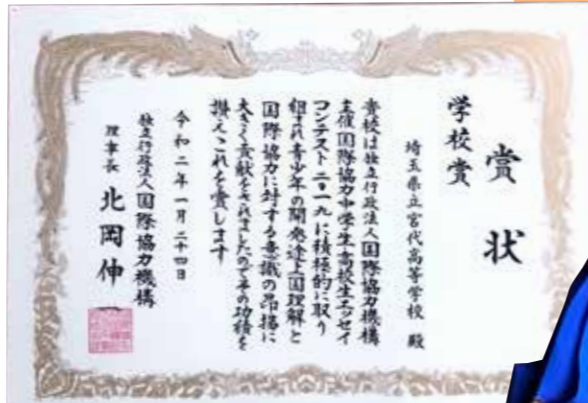 賞状
学校賞
埼玉県立宮代高等学校 殿
貴校は独立行政法人国際協力機構
主催国際協力中学生・高校生エッセイ
コンテスト二〇一九に積極的に取り
組まれ青少年の開発途上国理解と
国際協力に対する意識の昂揚に
大きく貢献をされましたのでその功績を
讃えこれを賞します
令和二年一月二十四日
独立行政法人国際協力機構
理事長 北岡伸一